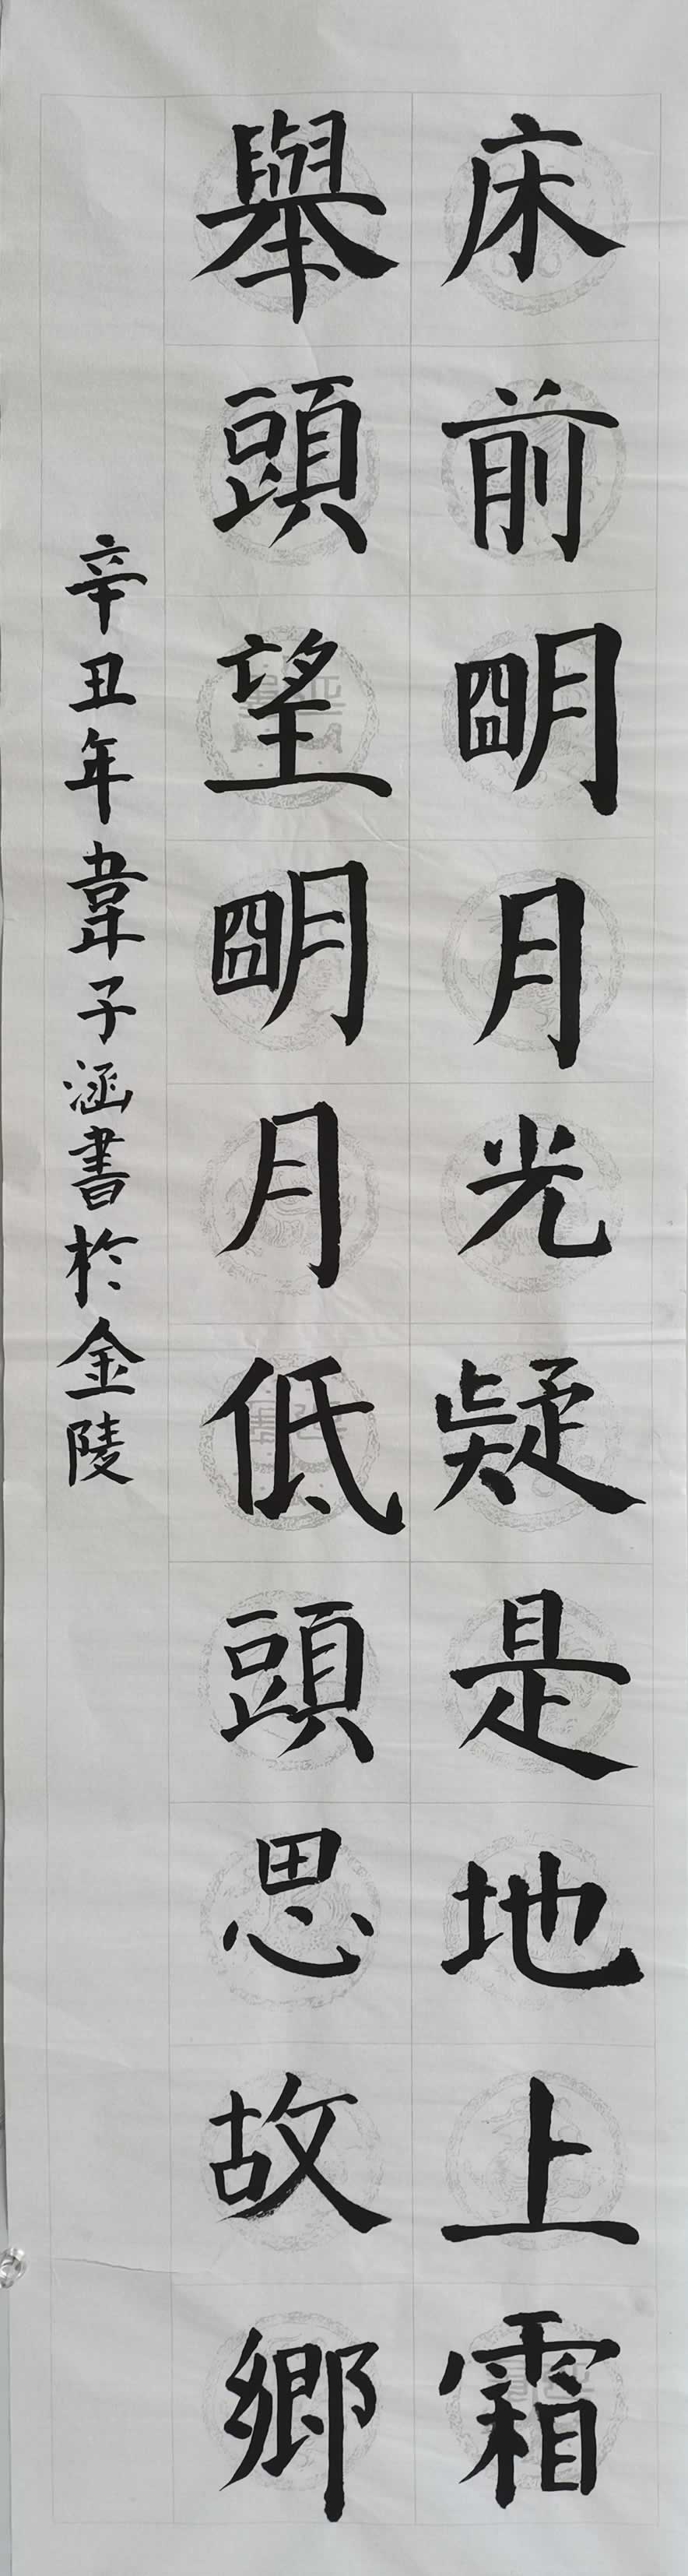 床前朙月光疑是地上霜
舉頭望朙月低頭思故鄉
辛丑年韋子涵書於金陵